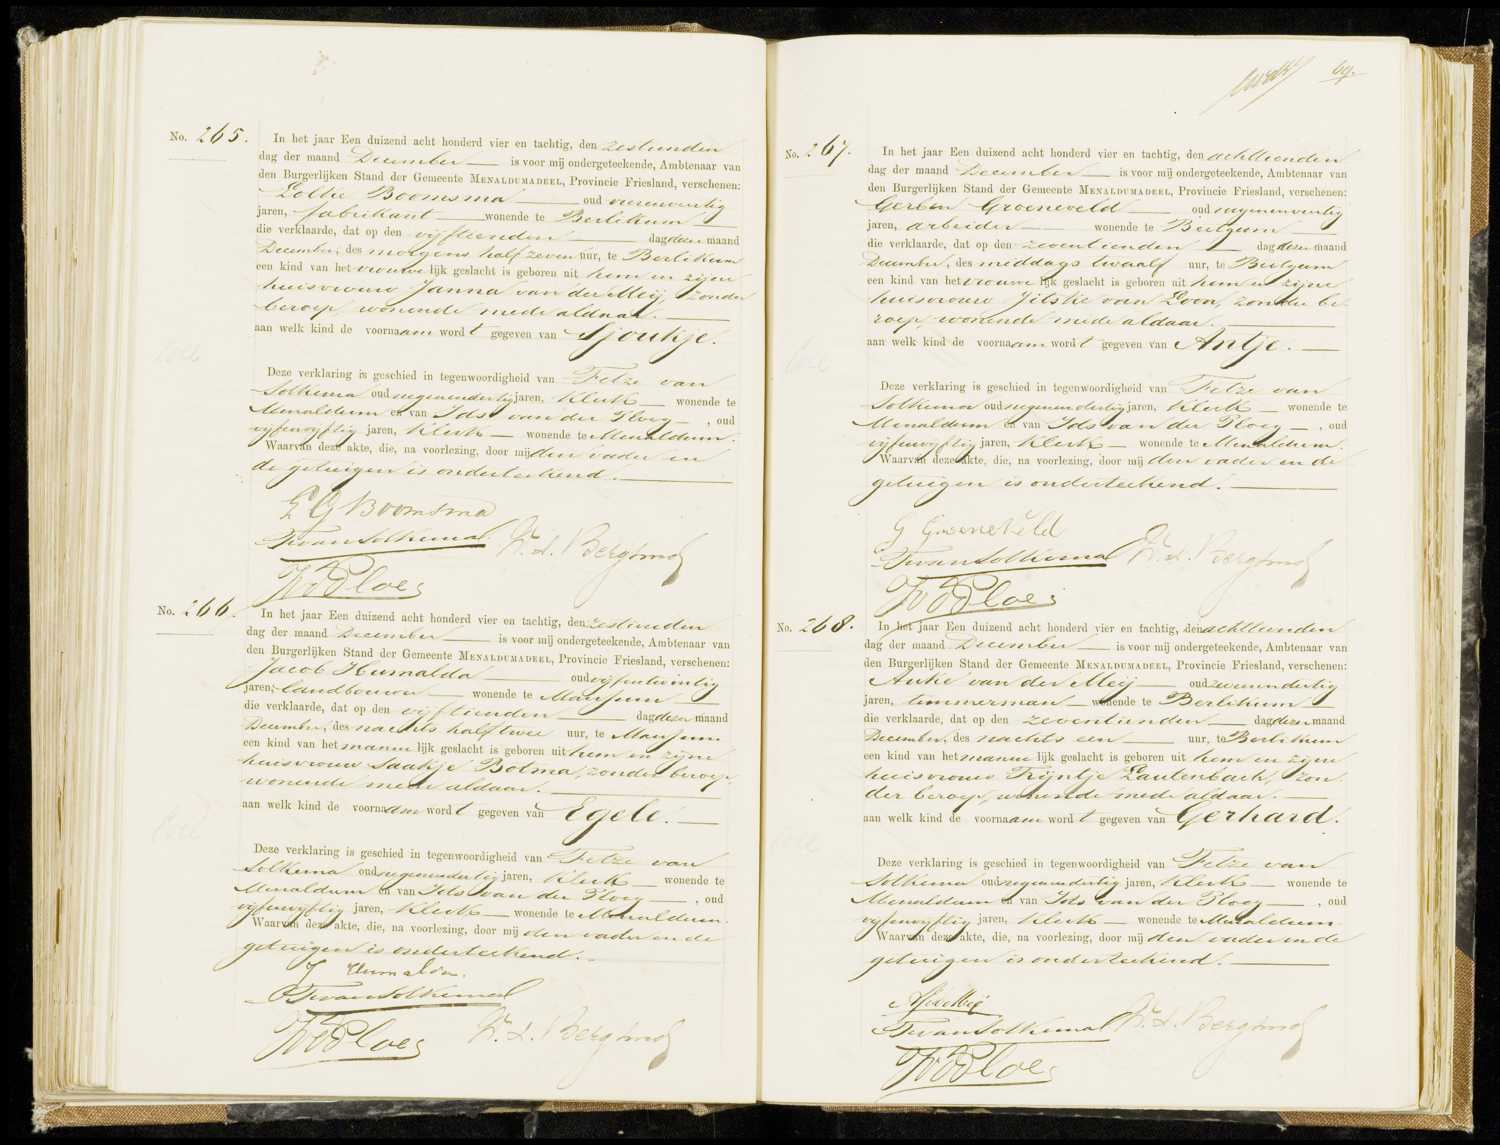 No. 265.
In het jaar Een duizend acht honderd vier en tachtig, den zestienden
dag der maand December is voor mij ondergeteekende, Ambtenaar van
den Burgerlijken Stand der Gemeente MENALDUMADEEL, Provincie Friesland, verschenen:
Eelke Boomsma oud vierenveertig
jaren, fabrikant wonende te Berlikum
die verklaarde, dat op den vijftienden dag dezer maand
December, des morgens half zeven uur, te Berlikum
een kind van het vrouwelijk geslacht is geboren uit hem en zijne
huisvrouw Janna van der Meij, zonder
beroep, wonende mede aldaar.
aan welk kind de voornaam wordt gegeven van Sjoukje.
Deze verklaring is geschied in tegenwoordigheid van Fetze van
Solkema oud negenendertig jaren, Klerk wonende te
Menaldum en van Ids van der Ploeg, oud
vijfenvijftig jaren, Klerk wonende te Menaldum.
Waarvan deze akte, die, na voorlezing, door mij den vader en
de getuigen is onderteekend.
E G Boomsma
F. van Solkema
No. 266.
In het jaar Een duizend acht honderd vier en tachtig, den zestienden
dag der maand December is voor mij ondergeteekende, Ambtenaar van
den Burgerlijken Stand der Gemeente MENALDUMADEEL, Provincie Friesland, verschenen:
Jacob Humalda oud vijfentwintig
jaren, landbouwer wonende te Marssum
die verklaarde, dat op den vijftienden dag dezer maand
December, des nachts half twee uur, te Marssum
een kind van het mannelijk geslacht is geboren uit hem en zijne
huisvrouw Saakje Botma, zonder beroep,
wonende mede aldaar.
aan welk kind de voornaam wordt gegeven van Egele.
Deze verklaring is geschied in tegenwoordigheid van Fetze van
Solkema oud negenendertig jaren, Klerk wonende te
Menaldum en van Ids van der Ploeg, oud
vijfenvijftig jaren, Klerk wonende te Menaldum.
Waarvan deze akte, die, na voorlezing, door mij den vader en de
getuigen is onderteekend.
J Humalda.
F. van Solkema
69.
No. 267.
In het jaar Een duizend acht honderd vier en tachtig, den achttienden
dag der maand December is voor mij ondergeteekende, Ambtenaar van
den Burgerlijken Stand der Gemeente MENALDUMADEEL, Provincie Friesland, verschenen:
Gerben Groeneveld oud negenenveertig
jaren, arbeider wonende te Beetgum
die verklaarde, dat op den zeventienden dag dezer maand
December, des middags twaalf uur, te Beetgum
een kind van het vrouwelijk geslacht is geboren uit hem en zijne
huisvrouw Jitske van Loon, zonder be-
roep, wonende mede aldaar.
aan welk kind de voornaam wordt gegeven van Antje.
Deze verklaring is geschied in tegenwoordigheid van Fetze van
Solkema oud negenendertig jaren, Klerk wonende te
Menaldum en van Ids van der Ploeg, oud
vijfenvijftig jaren, Klerk wonende te Menaldum.
Waarvan deze akte, die, na voorlezing, door mij den vader en de
getuigen is onderteekend.
G Groeneveld
F. van Solkema
No. 268.
In het jaar Een duizend acht honderd vier en tachtig, den achttienden
dag der maand December is voor mij ondergeteekende, Ambtenaar van
den Burgerlijken Stand der Gemeente MENALDUMADEEL, Provincie Friesland, verschenen:
Auke van der Meij oud tweeendertig
jaren, timmerman wonende te Berlikum
die verklaarde, dat op den zeventienden dag dezer maand
December, des nachts een uur, te Berlikum
een kind van het mannelijk geslacht is geboren uit hem en zijne
huisvrouw Trijntje Lautenbach, zon-
der beroep, wonende mede aldaar.
aan welk kind de voornaam wordt gegeven van Gerhard.
Deze verklaring is geschied in tegenwoordigheid van Fetze van
Solkema oud negenendertig jaren, Klerk wonende te
Menaldum en van Ids van der Ploeg, oud
vijfenvijftig jaren, Klerk wonende te Menaldum.
Waarvan deze akte, die, na voorlezing, door mij den vader en de
getuigen is onderteekend.
F. van Solkema